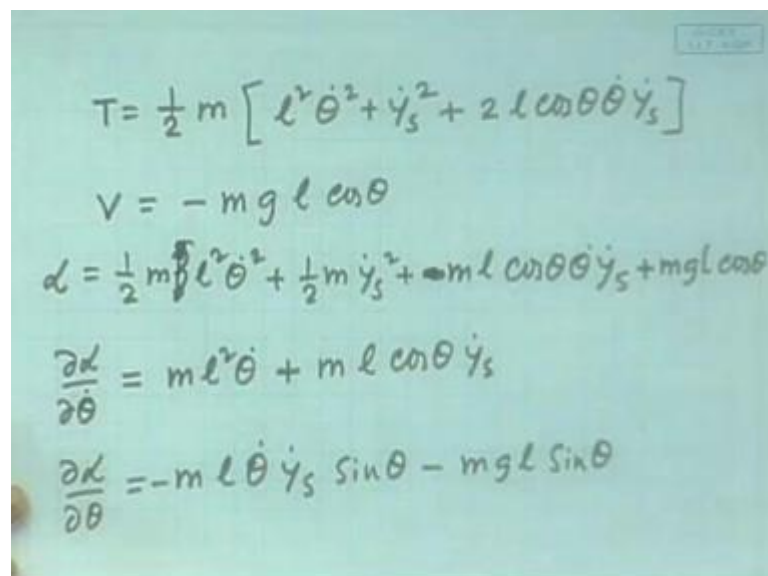 T = 1/2 m [ l² θ̇² + ẏₛ² + 2 l cosθ θ̇ ẏₛ ]
V = - m g l cosθ
ℒ = 1/2 m l² θ̇² + 1/2 m ẏₛ² + m l cosθ θ̇ ẏₛ + mgl cosθ
∂ℒ/∂θ̇ = m l² θ̇ + m l cosθ ẏₛ
∂ℒ/∂θ = - m l θ̇ ẏₛ Sinθ - mgl Sinθ